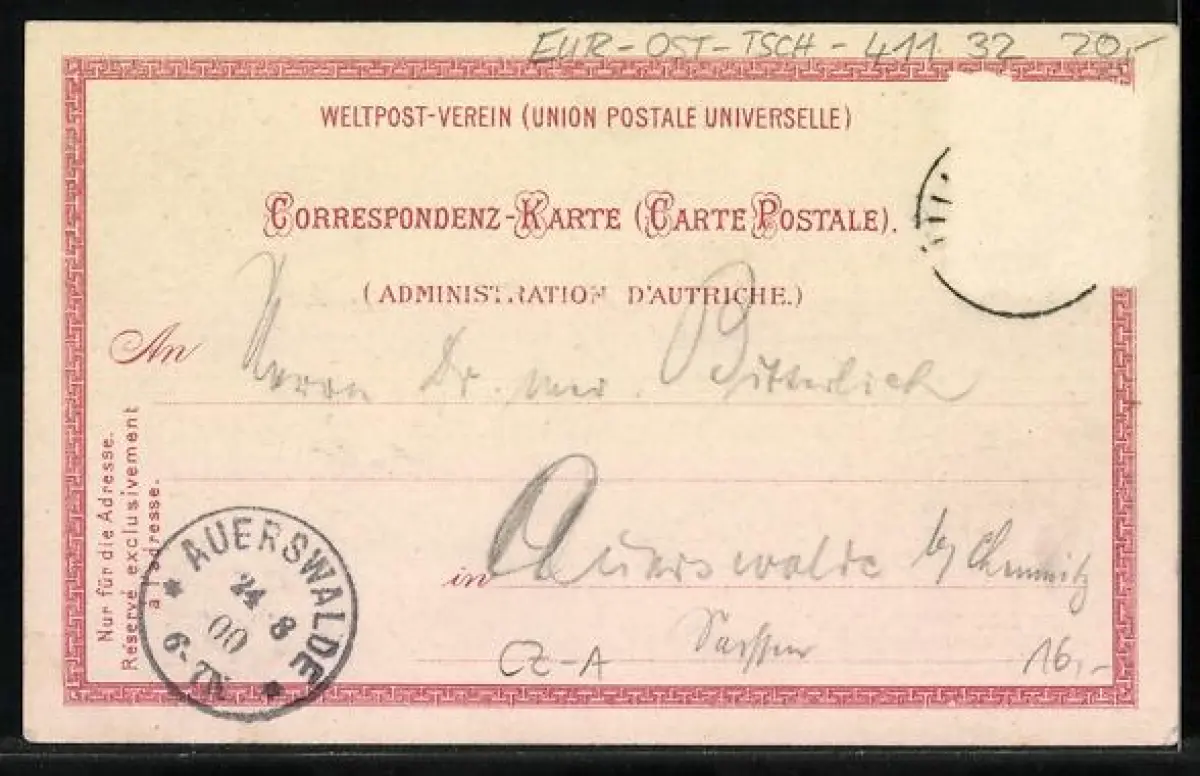 EUR-OST-TSCH-411 32 20,-
WELTPOST-VEREIN (UNION POSTALE UNIVERSELLE)
CORRESPONDENZ-KARTE (CARTE POSTALE).
(ADMINISTRATION D'AUTRICHE.)
An Herrn Dr. med. Bitterlich
in Auerswalde b/ Chemnitz
Sachsen
Nur für die Adresse.
Réservé exclusivement
à l'adresse.
AUERSWALDE
24 8
00
6-7N
CZ-A
16,-